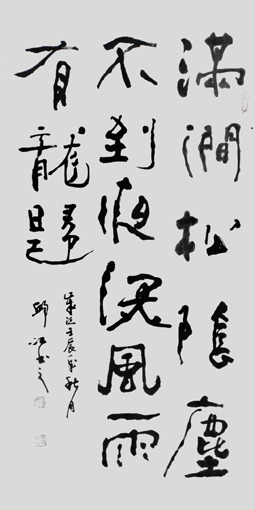 滿澗松陰塵
不到夜深風雨
有龍歸
歲在壬辰年秋月